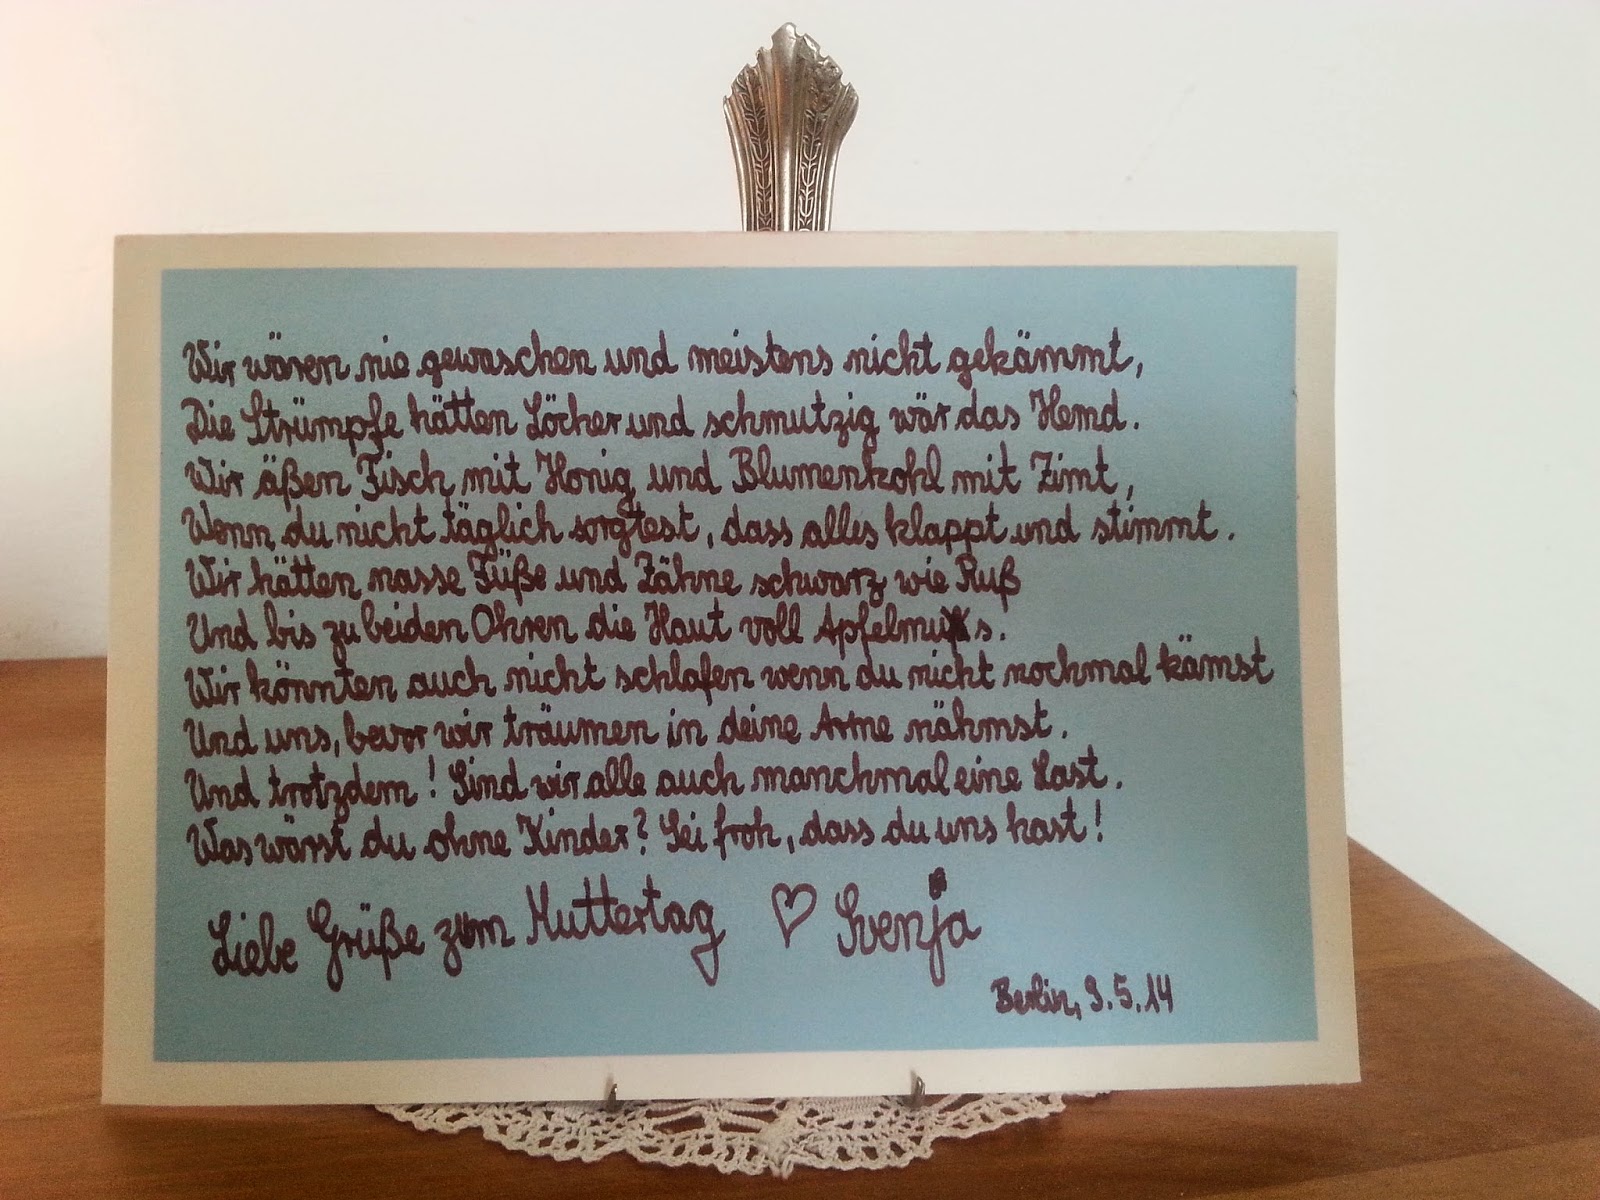 Wir wären nie gewaschen und meistens nicht gekämmt,
Die Strümpfe hätten Löcher und schmutzig wär das Hemd.
Wir äßen Fisch mit Honig und Blumenkohl mit Zimt,
Wenn du nicht täglich sorgtest, dass alles klappt und stimmt.
Wir hätten nasse Füße und Zähne schwarz wie Ruß
Und bis zu beiden Ohren die Haut voll Apfelmus.
Wir könnten auch nicht schlafen wenn du nicht nochmal kämst
Und uns, bevor wir träumen in deine Arme nähmst.
Und trotzdem! Sind wir alle auch manchmal eine Last.
Was wärst du ohne Kinder? Sei froh, dass du uns hast!
Liebe Grüße zum Muttertag ♡ Svenja
Berlin, 9.5.14